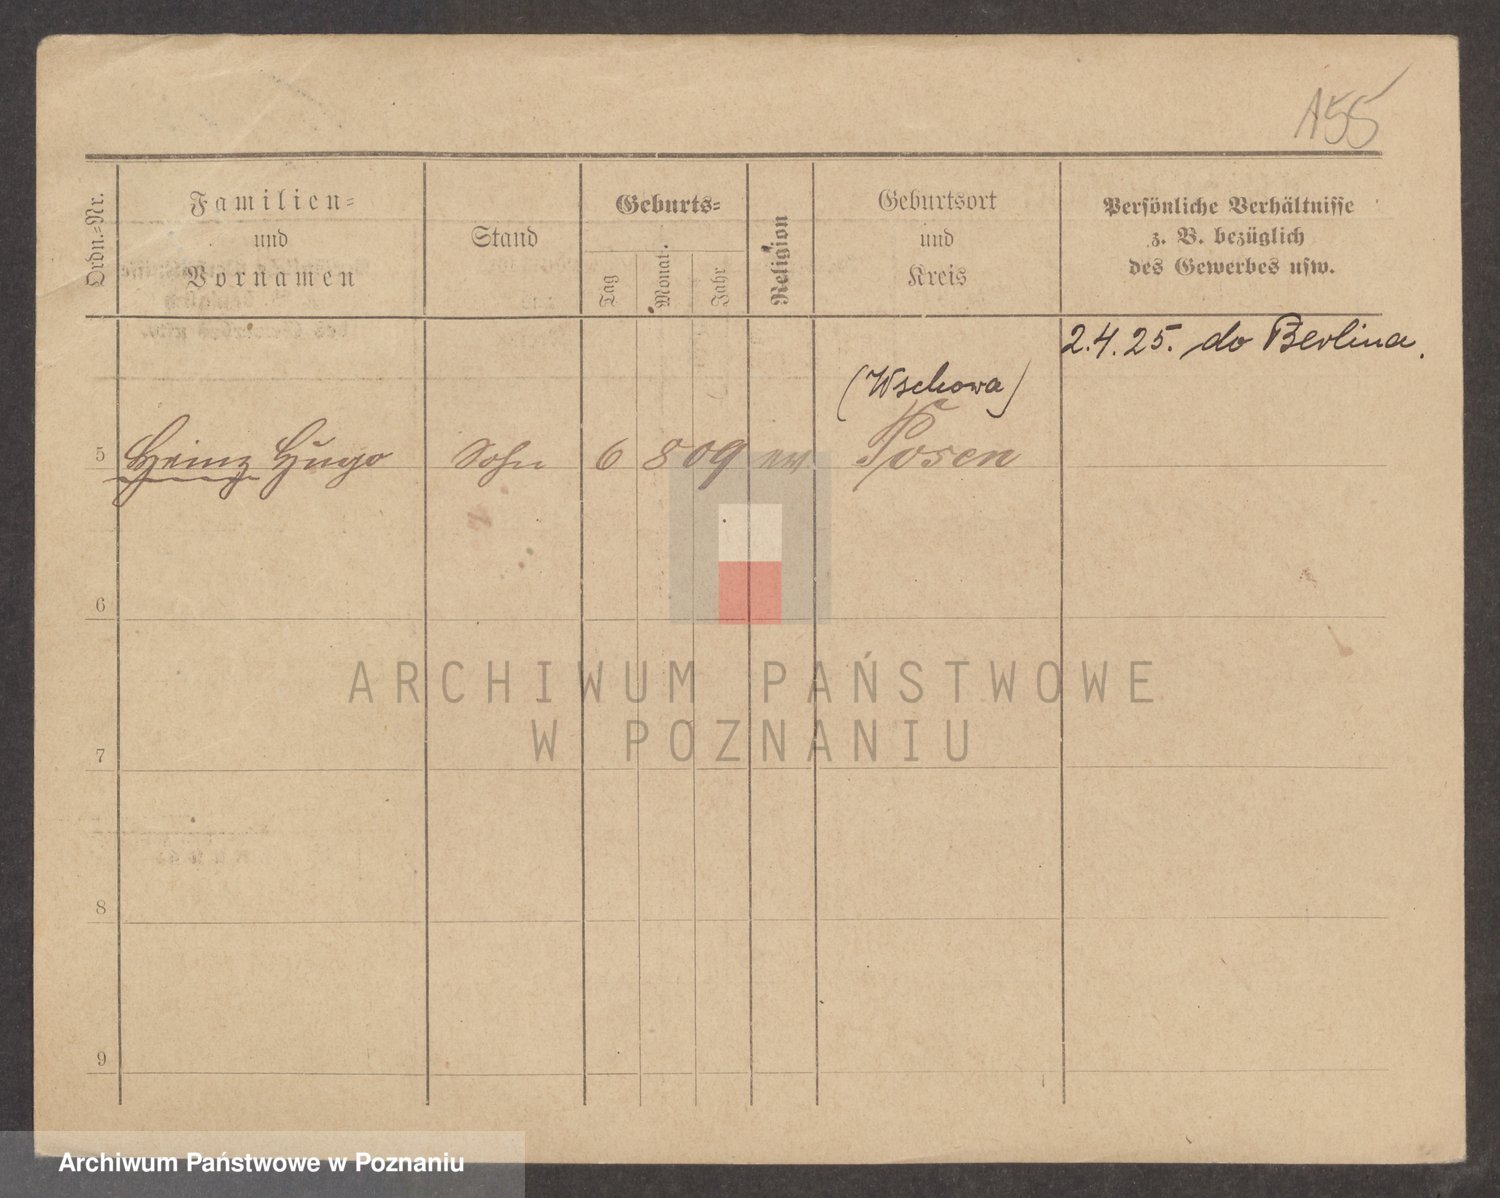 155
Ordn.-Nr.
Familien-
und
Vornamen
Stand
Geburts-
Tag
Monat
Jahr
Religion
Geburtsort
und
Kreis
Persönliche Verhältnisse
z. B. bezüglich
des Gewerbes usw.
2.4.25. do Berlina.
(Wschowa)
5 Heinz Hugo Sohn 6 8 09 ev Posen
6
ARCHIWUM PAŃSTWOWE
W POZNANIU
7
8
9
Archiwum Państwowe w Poznaniu